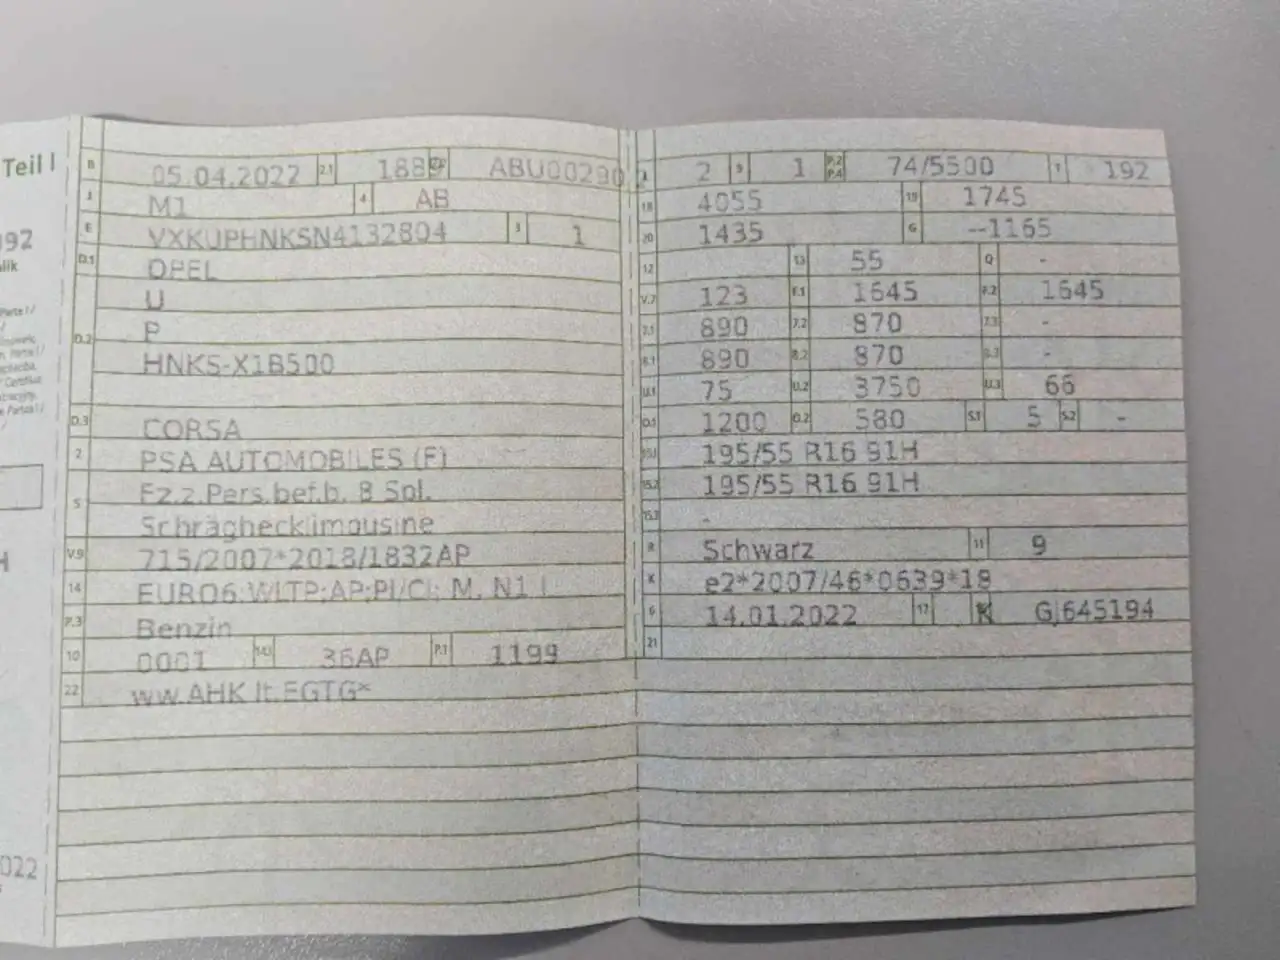 Teil I
B 05.04.2022 2.1 1889 2.2 ABU00290
J M1 4 AB
E VXKUPHNKSN4132804 3 1
D.1 OPEL
D.2 U
P
HNKS-X1B500
D.3 CORSA
2 PSA AUTOMOBILES (F)
5 Fz.z.Pers.bef.b. 8 Spl.
Schräghecklimousine
V.9 715/2007*2018/1832AP
14 EURO6;WLTP;AP;PI/CI; M, N1 I
P.3 Benzin
10 0001 14.1 36AP P.1 1199
22 ww.AHK lt.EGTG*
L 2 9 1 P.2 P.4 74/5500 T 192
18 4055 19 1745
20 1435 G --1165
12 13 55 Q -
V.7 123 F.1 1645 F.2 1645
7.1 890 7.2 870 7.3 -
8.1 890 8.2 870 8.3 -
U.1 75 U.2 3750 U.3 66
O.1 1200 O.2 580 S.1 5 S.2 -
15.1 195/55 R16 91H
15.2 195/55 R16 91H
15.3 -
R Schwarz 11 9
K e2*2007/46*0639*18
6 14.01.2022 17 K GJ645194
21